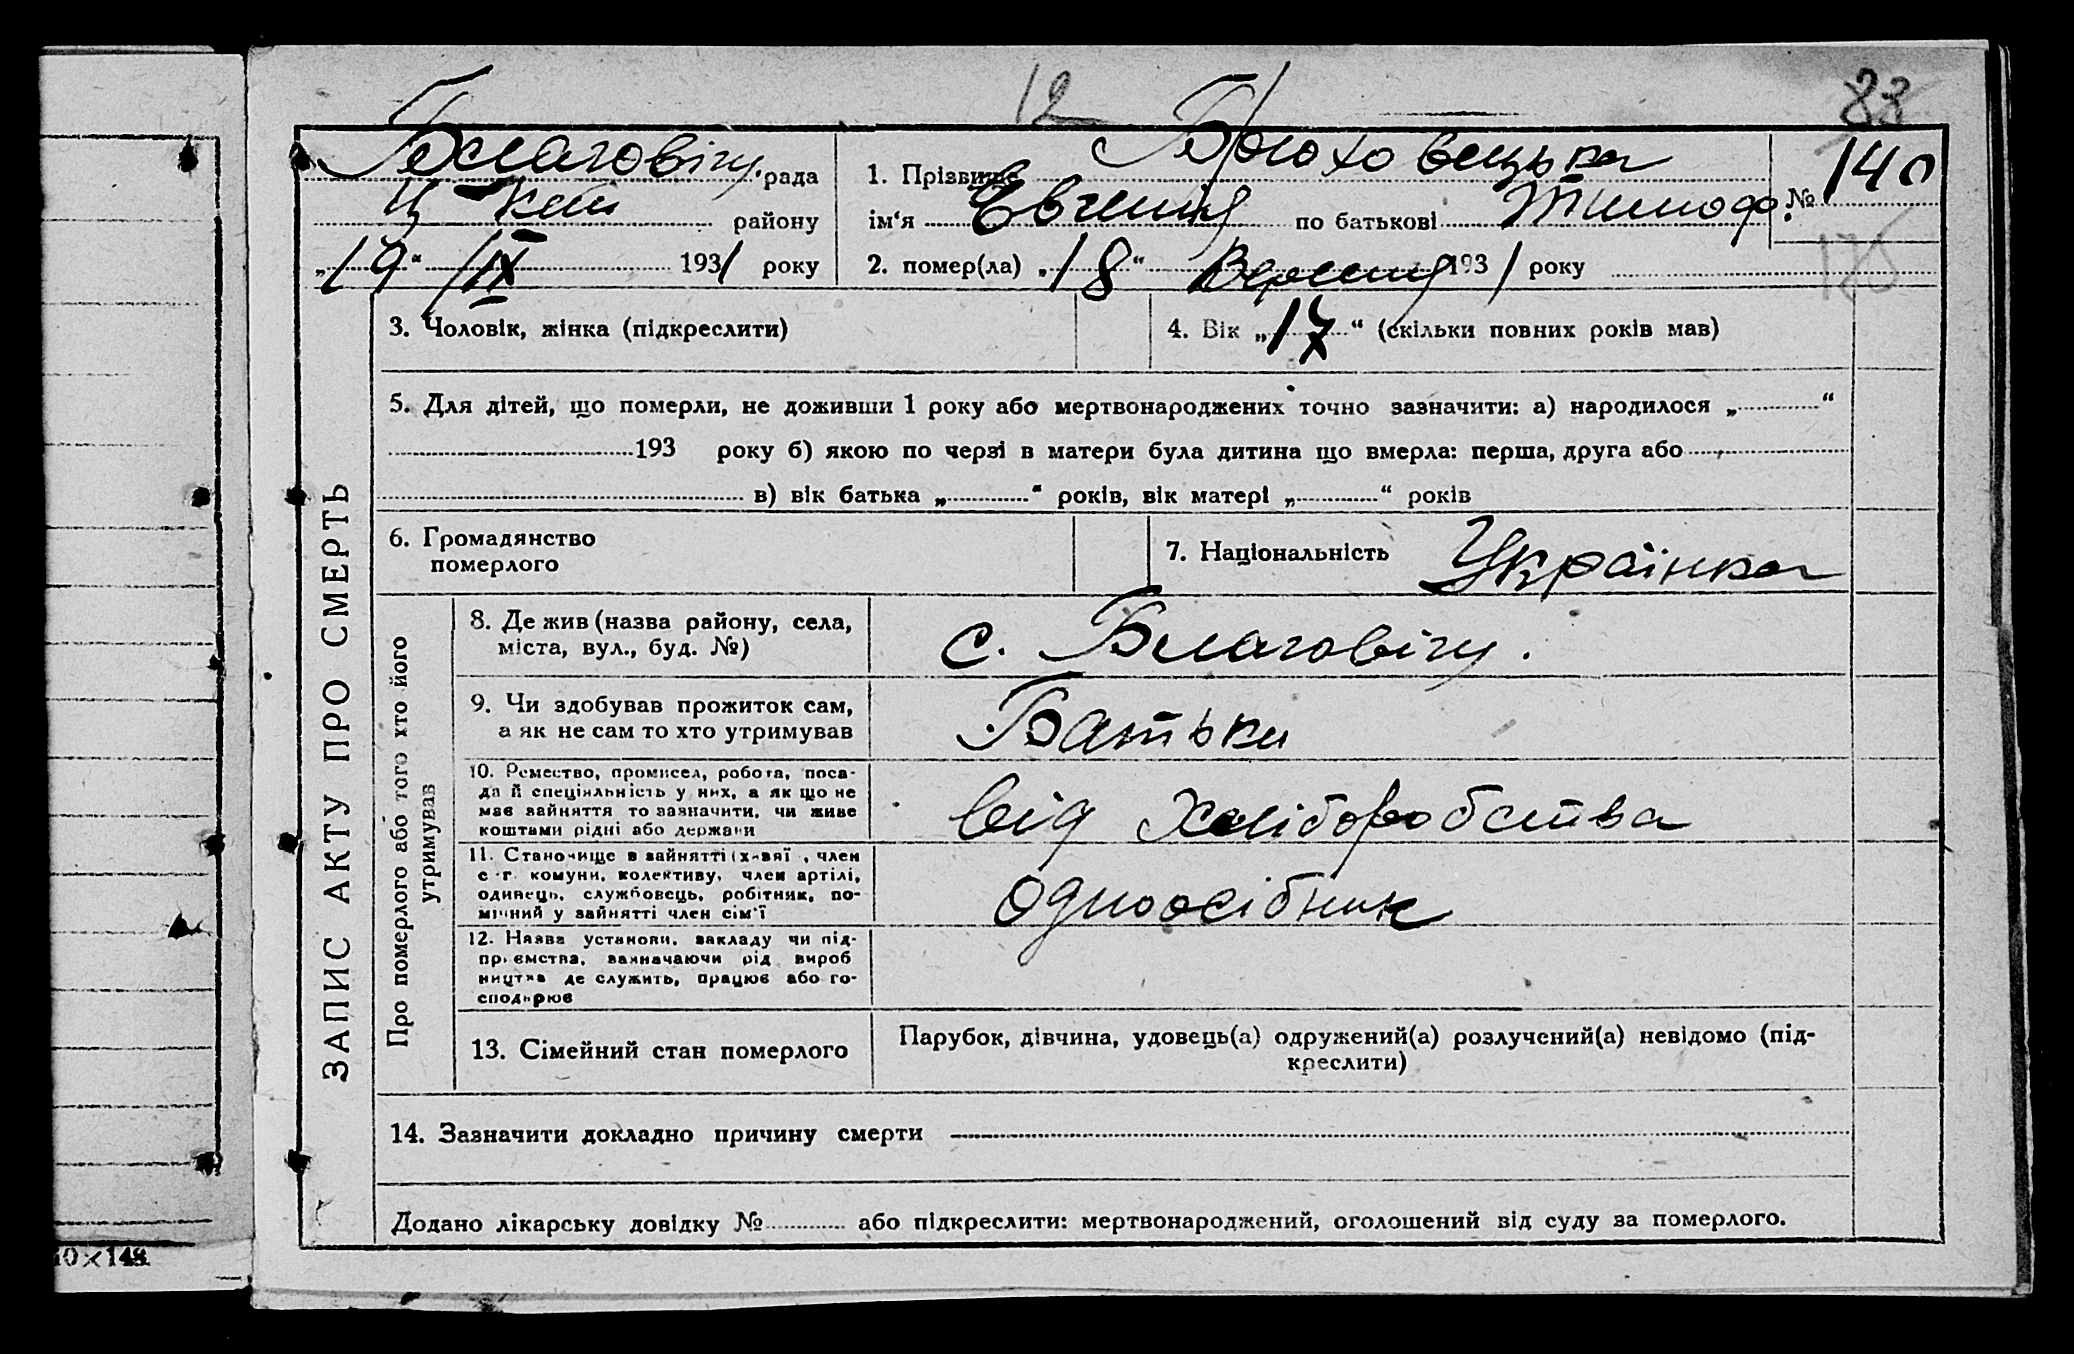 12
83
Благовіщ. рада
району
„19“ ІХ 1931 року
1. Прізвище Брюховецька
ім‘я Евгенія по батькові Тимоф.
2. помер(ла) „18“ Вересня 1931 року
№ 140
175
ЗАПИС АКТУ ПРО СМЕРТЬ
3. Чоловік, жінка (підкреслити)
4. Вік „17“ (скільки повних років мав)
5. Для дітей, що померли, не доживши 1 року або мертвонароджених точно зазначити: а) народилося „ “
193 року б) якою по черзі в матери була дитина що вмерла: перша, друга або
в) вік батька „ “ років, вік матері „ “ років
6. Громадянство
померлого
7. Національність Українка
Про померлого або того хто його
утримував
8. Де жив (назва району, села,
міста, вул., буд. №)
с. Благовіщ.
9. Чи здобував прожиток сам,
а як не сам то хто утримував
Батьки
10. Ремество, промисел, робота, поса-
да й спеціяльність у них, а як що не
має зайняття то зазначити, чи живе
коштами рідні або держави
від хліборобства
11. Становище в зайнятті (х-вяї, член
с-г. комуни, колективу, член артілі,
одинець, службовець, робітник, по-
мічний у зайнятті член сім'ї
одноосібник
12. Назва установи, закладу чи під-
приємства, зазначаючи рід вироб
ництва де служить, працює або го-
сподарює
13. Сімейний стан померлого
Парубок, дівчина, удовець(а) одружений(а) розлучений(а) невідомо (під-
креслити)
14. Зазначити докладно причину смерти
Додано лікарську довідку № або підкреслити: мертвонароджений, оголошений від суду за померлого.
10×148.